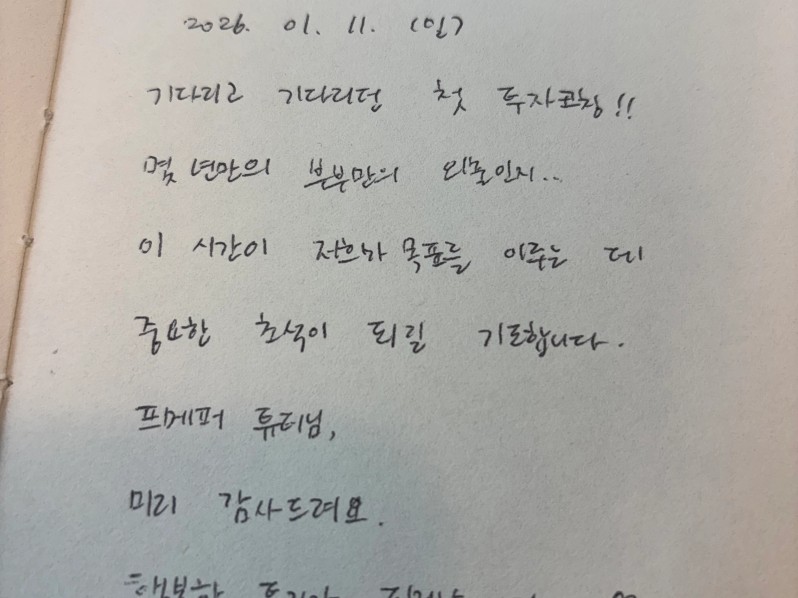 2026. 01. 11. (일)
기다리고 기다리던 첫 투자코칭!!
몇 년만의 부부만의 외출인지..
이 시간이 저희가 목표를 이루는 데
중요한 초석이 되길 기도합니다.
프메퍼 튜터님,
미리 감사드려요.
행복한